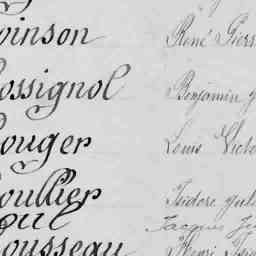 inson René Pierr
ossignol Benjamin
ouger Louis Victo
oullier Isidore Jule
oul Jacques Ju
ousseau Henri Isi